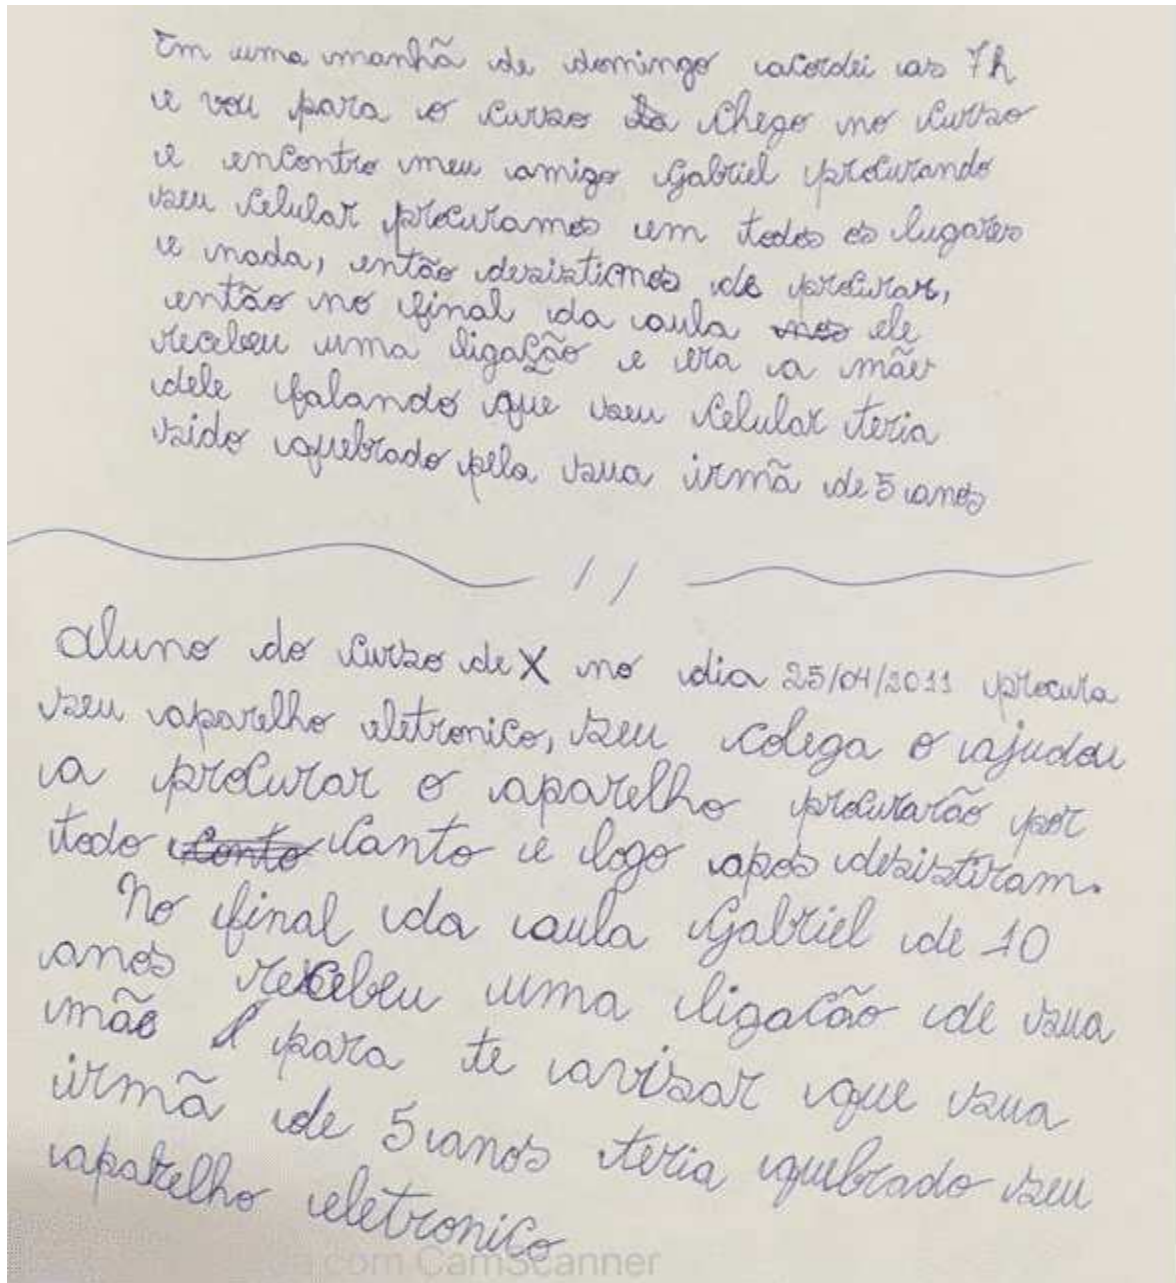 Em uma manhã de domingo acordei as 7h
e vou para o curso chego no curso
e encontro meu amigo Gabriel procurando
seu celular procuramos em todos os lugares
e nada, então desistimos de procurar,
então no final da aula nos ele
recebeu uma ligação e era a mãe
dele falando que seu celular teria
sido quebrado pela sua irmã de 5 anos
//
Aluno do curso de X no dia 25/04/2011 procura
seu aparelho eletronico, seu colega o ajudou
a procurar o aparelho procurarão por
todo conto canto e logo apos desistiram.
No final da aula Gabriel de 10
anos recebeu uma ligacão de sua
mãe para te avisar que sua
irmã de 5 anos teria quebrado seu
aparelho eletronico
com CamScanner